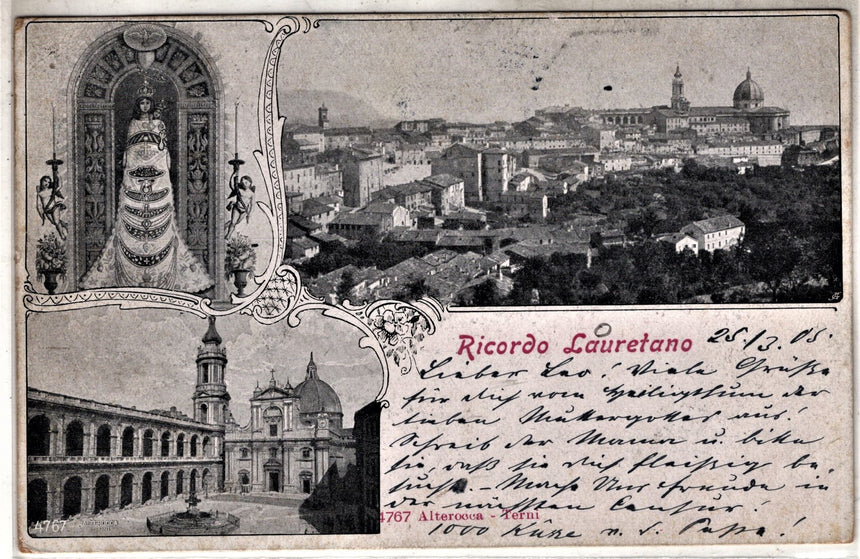 Ricordo Lauretano 25/3.05.
Lieber Leo! Viele Grüße
für dich vom Heiligthum der
lieben Muttergottes aus!
Schreib der Mama u. bitte
sie, daß sie dich fleißig be-
suche. – Mache Uns Freude in
der nächsten Censur!
4767 Alterocca - Terni
1000 Küße v. d. Papa!
4767 ALTEROCCA
TERNI